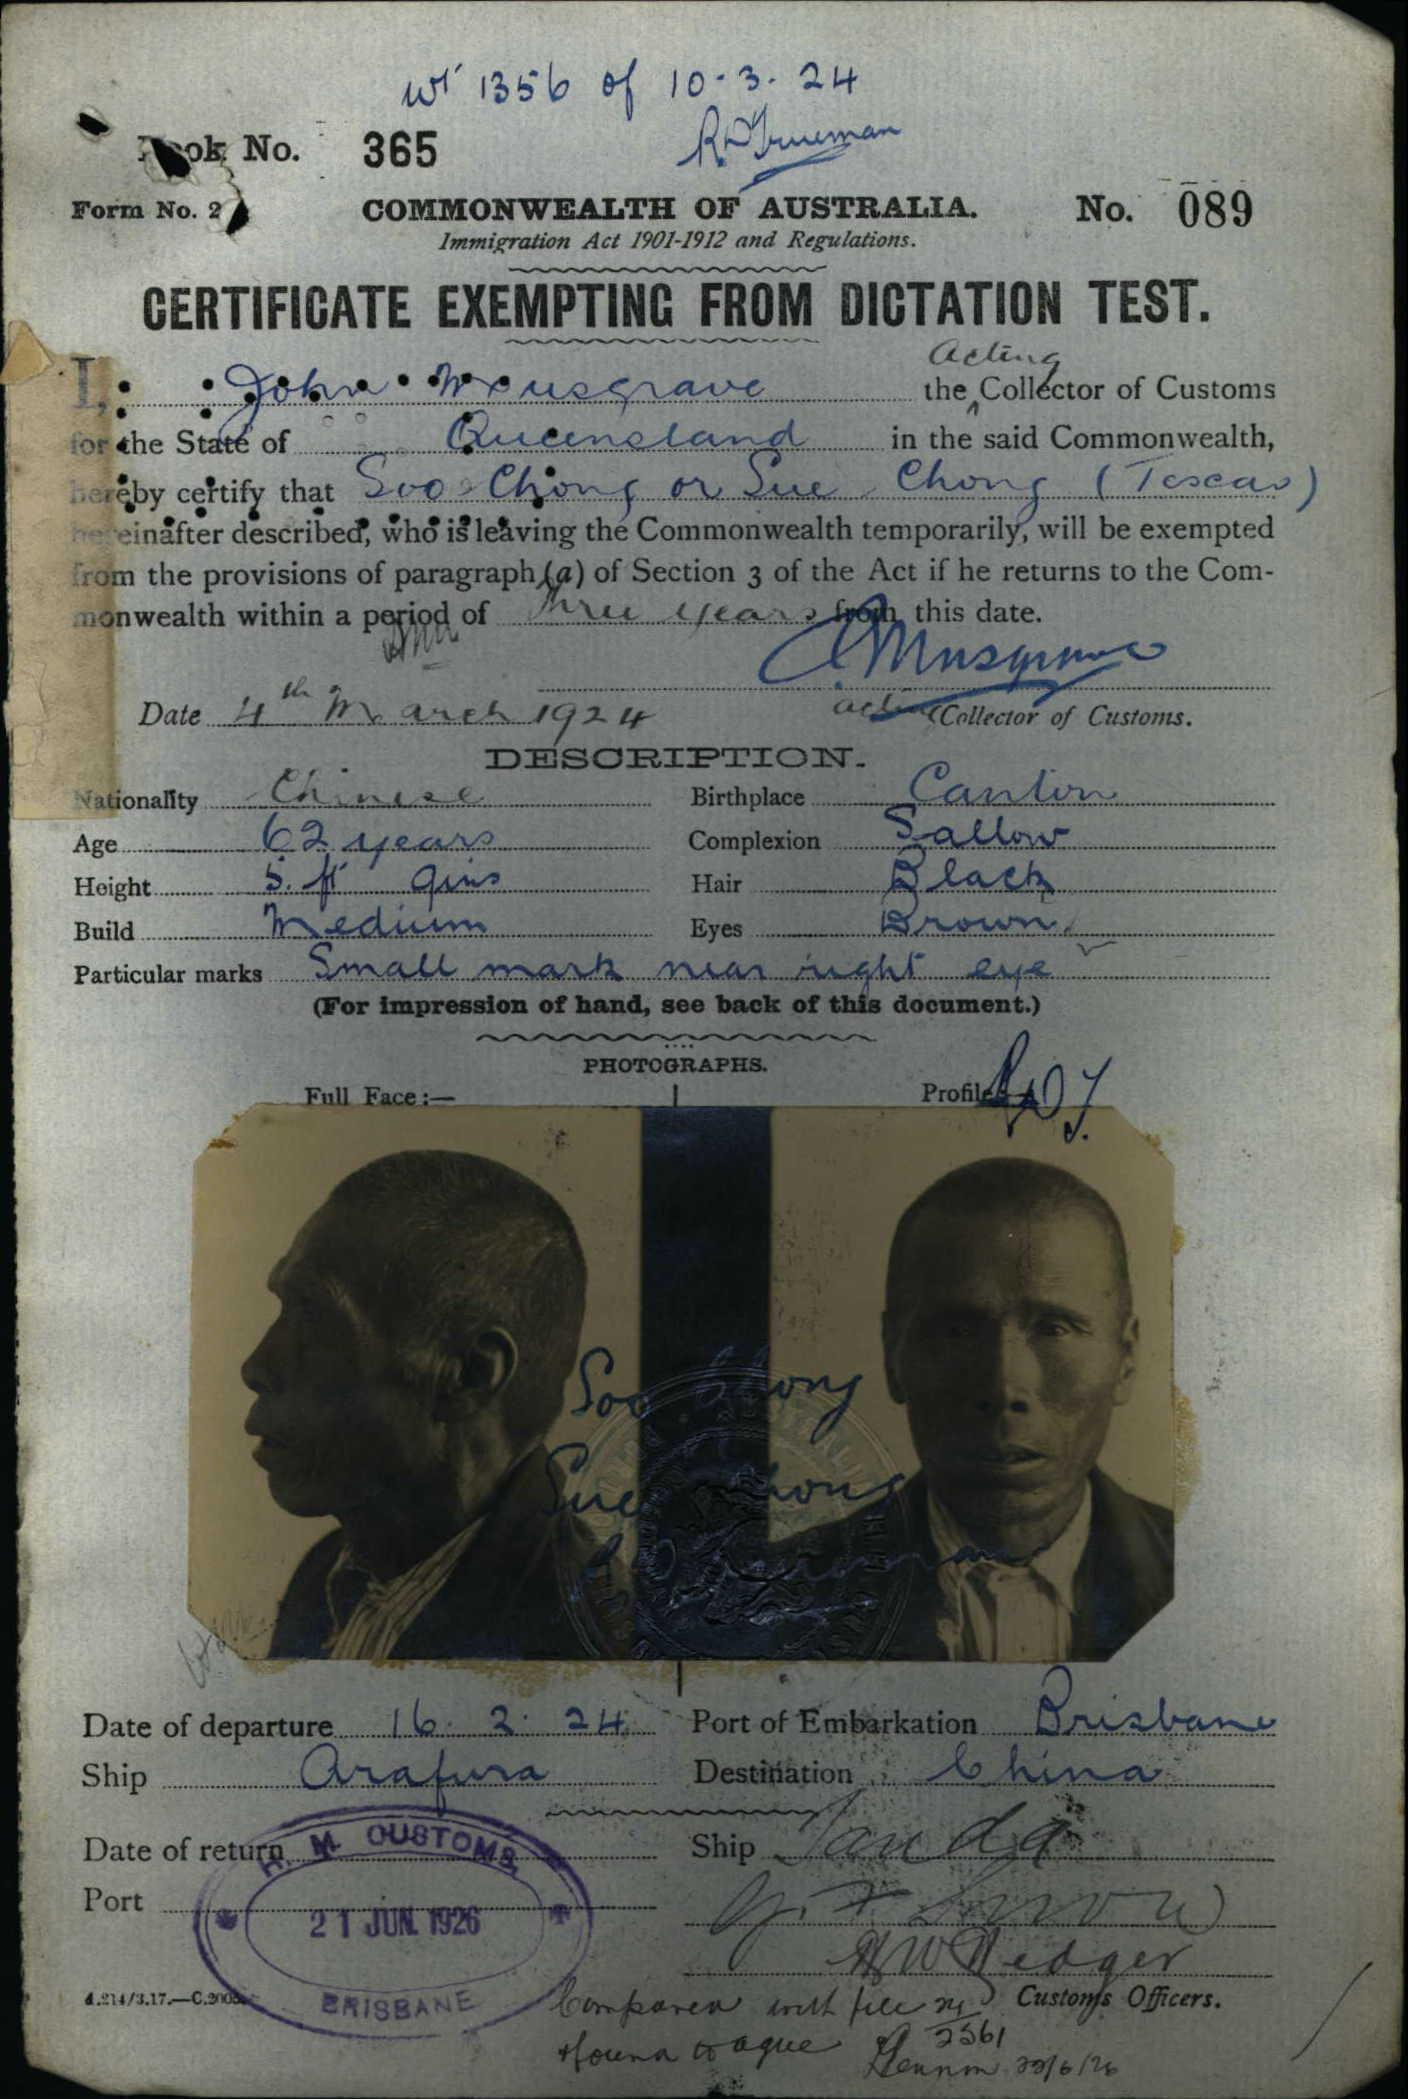 Wt 1356 of 10-3-24
Book No. 365
R.D.Trueman
Form No. 2
COMMONWEALTH OF AUSTRALIA. No. 089
Immigration Act 1901-1912 and Regulations.
CERTIFICATE EXEMPTING FROM DICTATION TEST.
Acting
I, John Musgrave the Collector of Customs
for the State of Queensland in the said Commonwealth,
hereby certify that Soo Chong or Sue Chong
hereinafter described, who is leaving the Commonwealth temporarily, will be exempted
from the provisions of paragraph (a) of Section 3 of the Act if he returns to the Com-
monwealth within a period of three years from this date.
Musgrave
Date 4th March 1924 acting Collector of Customs.
DESCRIPTION.
Nationality Chinese Birthplace Canton
Age 62 years Complexion Sallow
Height 5 ft 9ins Hair Black
Build Medium Eyes Brown
Particular marks Small mark near right eye
(For impression of hand, see back of this document.)
PHOTOGRAPHS.
Full Face:— Profile:—
RDT
Soo Chong
Sue Chong
R D Trueman
Date of departure 16. 3. 24 Port of Embarkation Brisbane
Ship Arafura Destination China
Date of return Ship Tanda
Port
H. M. CUSTOMS
21 JUN. 1926
BRISBANE
Customs Officers.
Compared with file 24/2361
found to agree
22/6/26